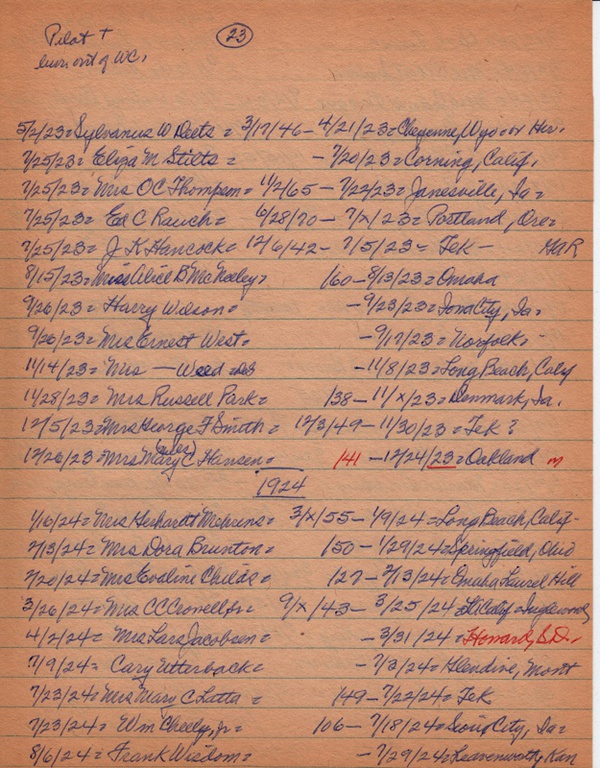 Pilot +
burn out of WC.
23
5/2/23 = Sylvanus W Deets = 3/17/46 - 4/21/23 = Cheyenne, Wyo = or Her.
7/25/23 = Eliza M Stilts = - 7/20/23 = Corning, Calif.
7/25/23 = Mrs OC Thompson = 1/2/65 - 7/22/23 = Janesville, Ia =
7/25/23 = Ed C Rauch = 6/28/70 - 7/x/23 = Portland, Ore =
7/25/23 = J K Hancock = 12/6/42 - 7/5/23 = Tek - MAR
8/15/23 = Miss B McNeeley = 160 - 8/13/23 = Omaha
9/26/23 = Harry Wilson = - 9/23/23 = Iowa City, Ia.
9/26/23 = Mrs Ernest West = - 9/17/23 = Norfolk =
11/14/23 = Mrs — Weed = - 11/8/23 = Long Beach, Calif
11/28/23 = Mrs Russell Park = 138 - 11/x/23 = Denmark, Ia.
12/5/23 = Mrs George F Smith = 12/3/49 - 11/30/23 = Tek ?
12/26/23 = Mrs Mary C Hansen = 141 - 12/24/23 = Oakland m
1924
1/16/24 = Mrs Gerhardt Mehrens = 3/x/55 - 1/9/24 = Long Beach, Calif -
2/13/24 = Mrs Dora Brunton = 150 - 1/29/24 = Springfield, Ohio
2/20/24 = Mrs Evaline Childs = 127 - 2/13/24 = Omaha Laurel Hill
3/26/24 = Mrs CC Crowell Sr = 9/x/43 - 3/25/24 Calif = Inglewood
4/2/24 = Mrs Lars Jacobsen = - 3/31/24 = Howard, S.D.
7/9/24 = Cary Utterback = - 7/3/24 = Glendive, Mont
7/23/24 = Mrs Mary C Latta = 149 - 7/22/24 = Tek
7/23/24 = Wm Cheely, Jr = 106 - 7/18/24 = Sioux City, Ia =
8/6/24 = Frank Wisdom = - 7/29/24 = Leavenworth, Kan